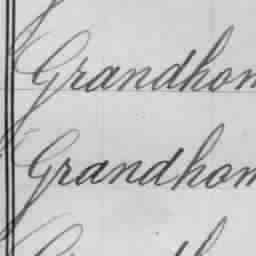 Grandhom
Grandhom